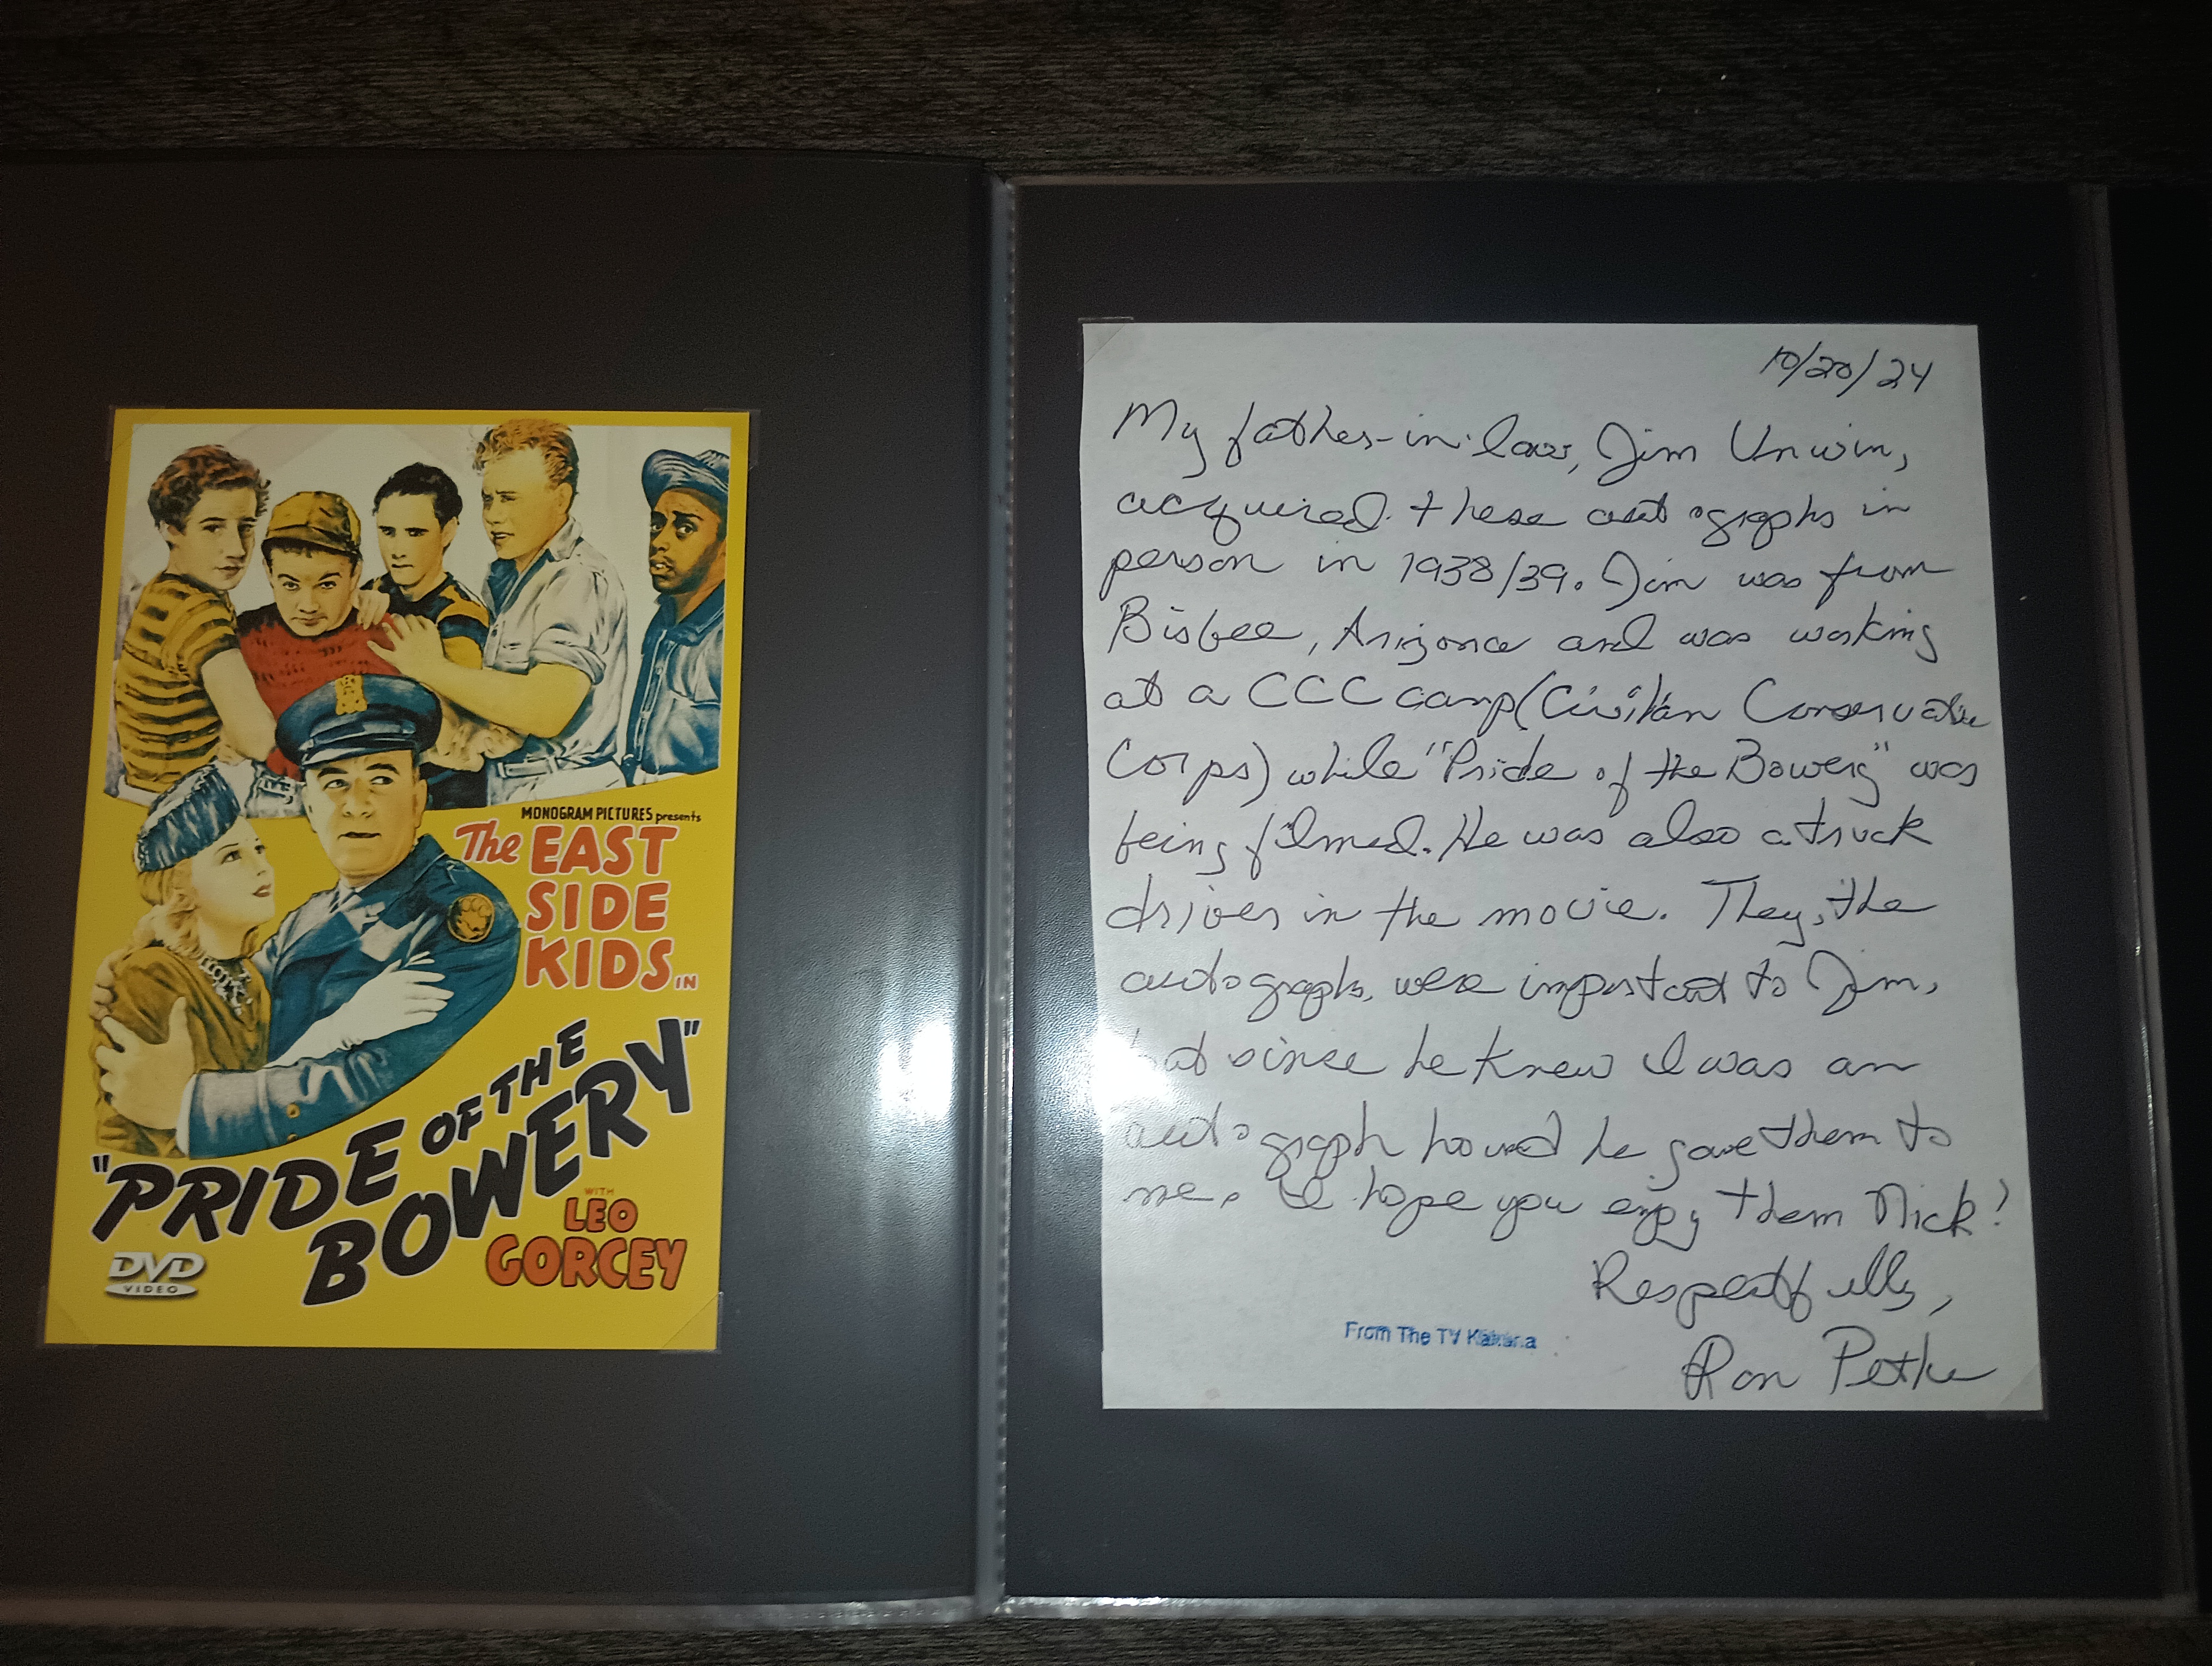 MONOGRAM PICTURES presents
The EAST
SIDE
KIDS IN
"PRIDE OF THE
BOWERY"
WITH
LEO
GORCEY
DVD
VIDEO
10/20/24
My father-in-law, Jim Unwin,
acquired these autographs in
person in 1938/39. Jim was from
Bisbee, Arizona and was working
at a CCC camp (Civilian Conservation
Corps) while "Pride of the Bowery" was
being filmed. He was also a truck
driver in the movie. They, the
autographs, were important to Jim,
but since he knew I was an
autograph hound he gave them to
me. I hope you enjoy them Nick!
Respectfully,
From The TV
Ron Petke